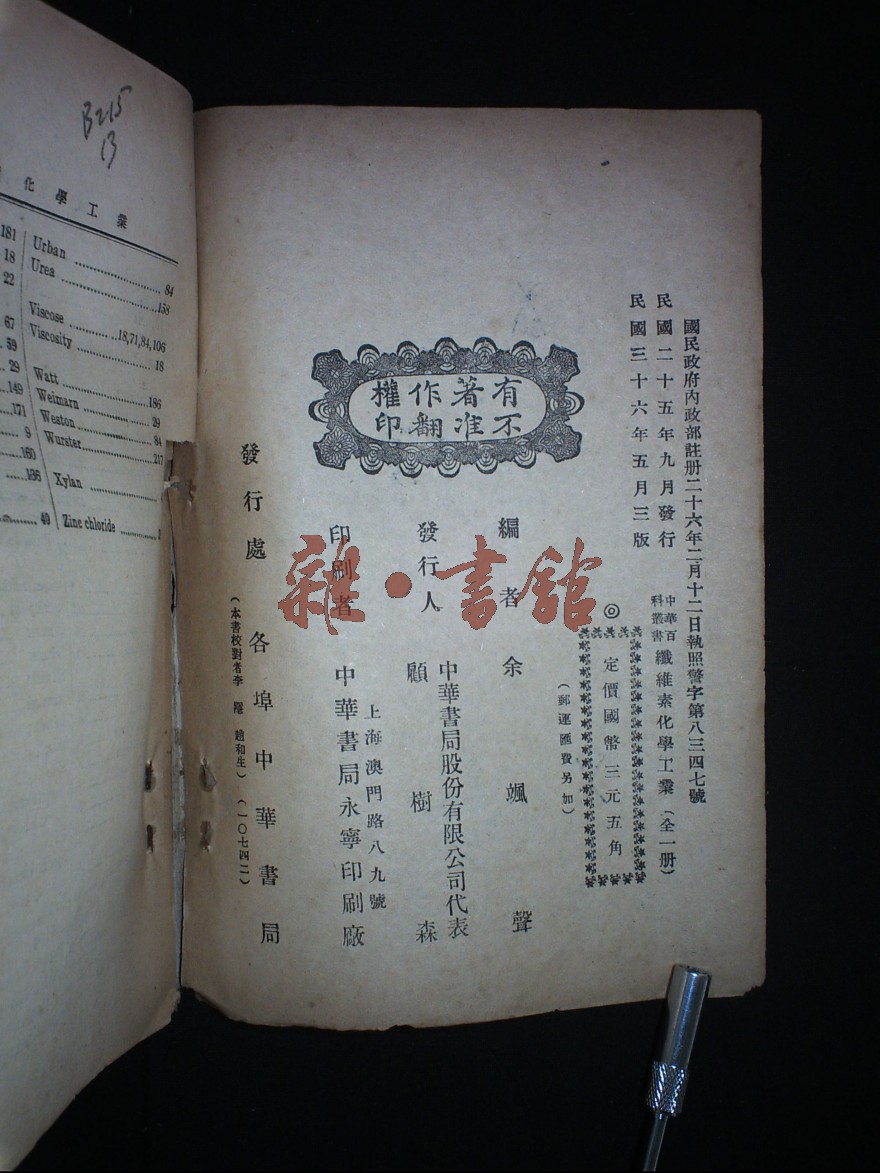 B215
13
化學工業
181
18
22
67
59
29
149
171
9
160
136
49
Urban 84
Urea 158
Viscose 18,71,84,106
Viscosity 18
Watt 186
Weimarn 29
Weston 84
Wurster 217
Xylan
Zinc chloride 3
國民政府內政部註册二十六年二月十二日執照警字第八三四七號
民國二十五年九月發行
民國三十六年五月三版
中華百科叢書 纖維素化學工業(全一册)
◎定價國幣三元五角
(郵運匯費另加)
有著作權
不准翻印
編者 余颯聲
發行人 中華書局股份有限公司代表
顧樹森
印刷者 上海澳門路八九號
中華書局永寧印刷廠
發行處 各埠中華書局
(本書校對者李 趙和生)(一〇七四二)
雜·書館